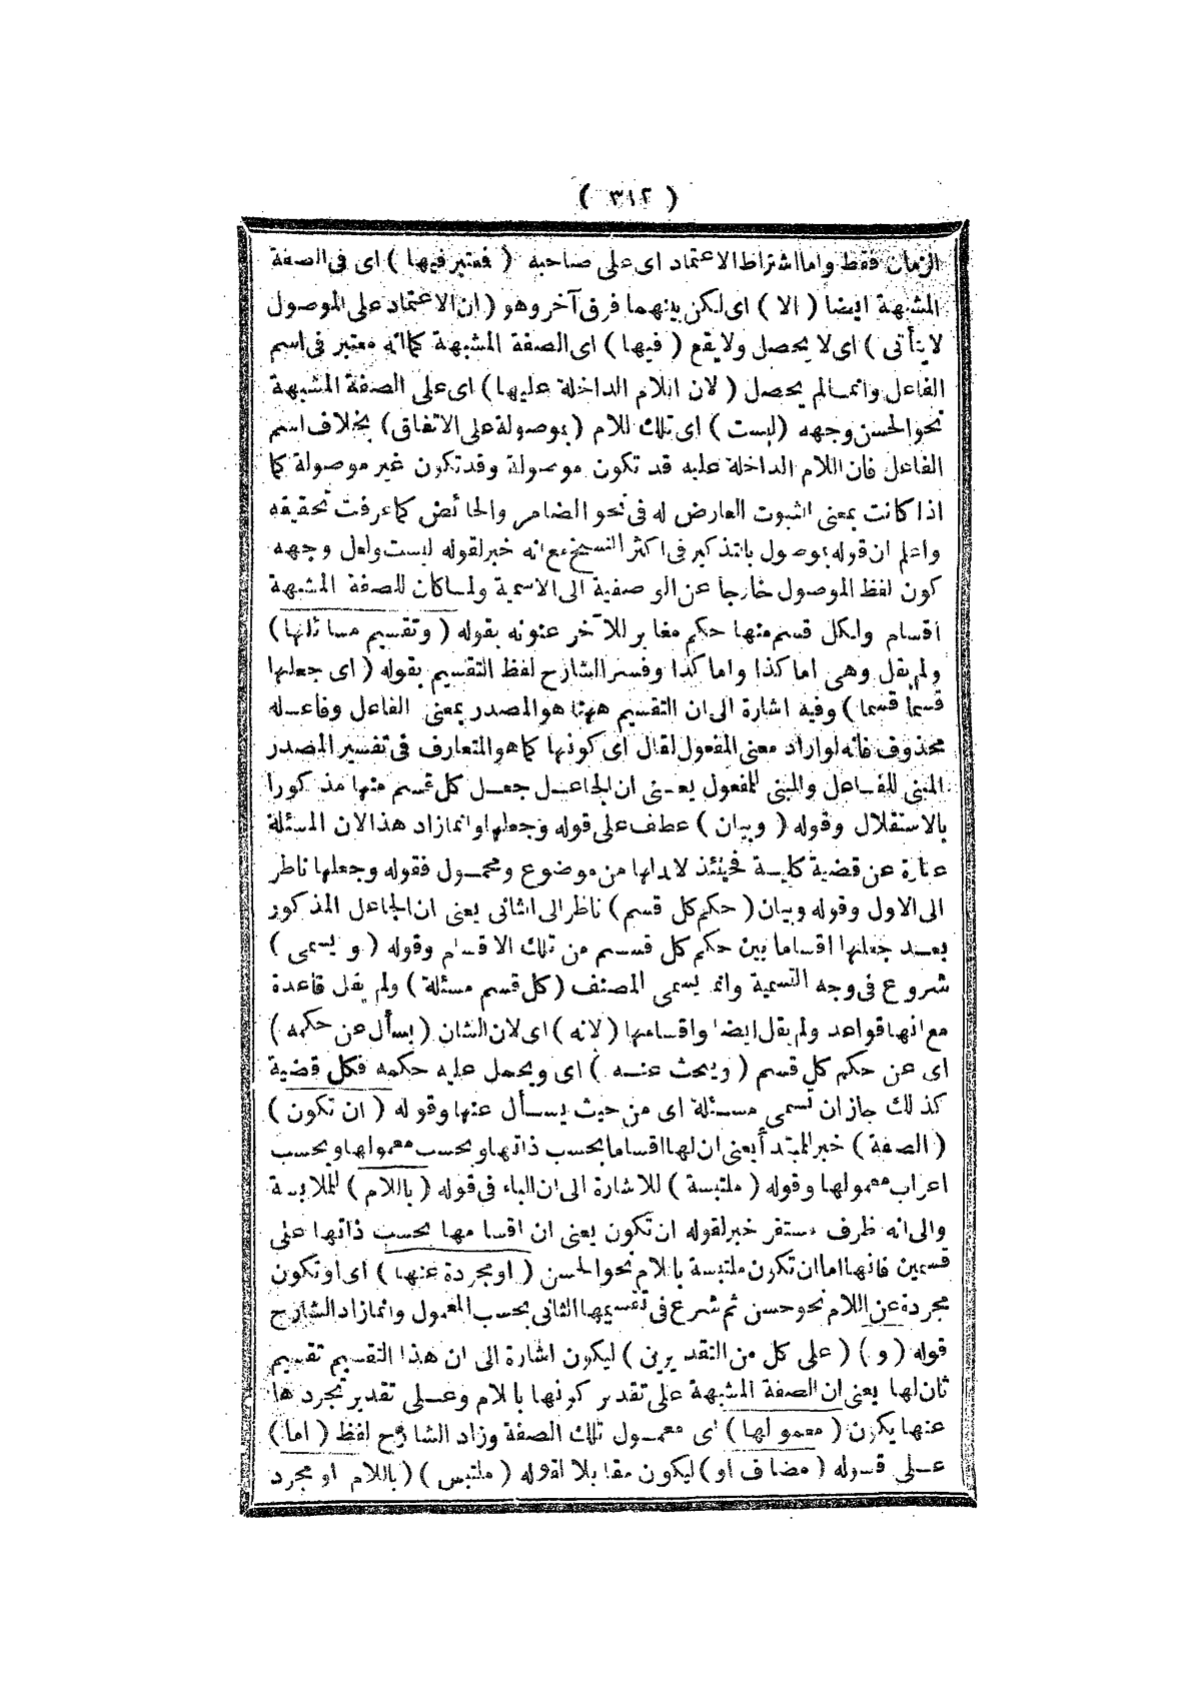 ( ٣١٢ )
الزمان فقط واما اشتراط الاعتماد اى على صاحبه ( فمعتبر فيها ) اى فى الصفة
المشبهة ايضا ( الا ) اى لكن بينهما فرق آخر وهو ( ان الاعتماد على الموصول
لا يتأتى ) اى لا يحصل ولا يقع ( فيها ) اى الصفة المشبهة كما انه معتبر فى اسم
الفاعل وانما لم يحصل ( لان اللام الداخلة عليها ) اى على الصفة المشبهة
نحو الحسن وجهه ( ليست ) اى تلك اللام ( بموصولة على الاتفاق ) بخلاف اسم
الفاعل فان اللام الداخلة عليه قد تكون موصولة وقد تكون غير موصولة كما
اذا كانت بمعنى الثبوت العارض له فى نحو الضامر والحائض كما عرفت تحقيقه
واعلم ان قوله بموصول بالتذكير فى اكثر النسخ مع انه خبر لقوله ليست ولعل وجهه
كون لفظ الموصول خارجا عن الوصفية الى الاسمية ولما كان للصفة المشبهة
اقسام ولكل قسم منها حكم مغاير للآخر عنونه بقوله ( وتقسيم مسائلها )
ولم يقل وهى اما كذا واما كذا وفسر الشارح لفظ التقسيم بقوله ( اى جعلها
قسما قسما ) وفيه اشارة الى ان التقسيم ههنا هو المصدر بمعنى الفاعل وفاعله
محذوف فانه لو اراد معنى المفعول لقال اى كونها كما هو المتعارف فى تفسير المصدر
المبنى للفاعل والمبنى للمفعول يعنى ان الجاعل جعل كل قسم منها مذكورا
بالاستقلال وقوله ( وبيان ) عطف على قوله وجعلها وانما زاد هذا لان المسئلة
عبارة عن قضية كلية فحينئذ لا بد لها من موضوع ومحمول فقوله وجعلها ناظر
الى الاول وقوله وبيان ( حكم كل قسم ) ناظر الى الثانى يعنى ان الجاعل المذكور
بعد جعلها اقساما بين حكم كل قسم من تلك الاقسام وقوله ( ويسمى )
شروع فى وجه التسمية وانما يسمى المصنف ( كل قسم مسئلة ) ولم يقل قاعدة
مع انها قواعد ولم يقل ايضا واقسامها ( لانه ) اى لان الشان ( يسأل عن حكمه )
اى عن حكم كل قسم ( ويبحث عنه ) اى ويحمل عليه حكمه فكل قضية
كذلك جاز ان تسمى مسئلة اى من حيث يسأل عنها وقوله ( ان تكون )
( الصفة ) خبر المبتدأ يعنى ان لها اقساما بحسب ذاتها وبحسب معمولها وبحسب
اعراب معمولها وقوله ( ملتبسة ) للاشارة الى ان الباء فى قوله ( باللام ) للملابسة
والى انه ظرف مستقر خبر لقوله ان تكون يعنى ان اقسامها بحسب ذاتها على
قسمين فانها اما ان تكون ملتبسة باللام نحو الحسن ( او مجردة عنها ) اى او تكون
مجردة عن اللام نحو حسن ثم شرع فى تقسيمها الثانى بحسب المعمول وانما زاد الشارح
قوله ( و ) ( على كل من التقديرين ) ليكون اشارة الى ان هذا التقسيم تقسيم
ثان لها يعنى ان الصفة المشبهة على تقدير كونها باللام وعلى تقدير تجردها
عنها يكون ( معمولها ) اى معمول تلك الصفة وزاد الشارح لفظ ( اما )
على قوله ( مضاف او ) ليكون مقابلا لقوله ( ملتبس ) ( باللام او مجرد